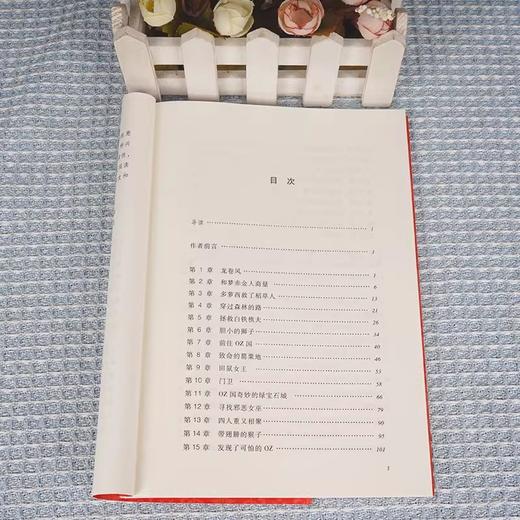 目 次
导读 1
作者前言 1
第 1 章 龙卷风 1
第 2 章 和梦赤金人商量 6
第 3 章 多萝西救了稻草人 13
第 4 章 穿过森林的路 21
第 5 章 拯救白铁樵夫 26
第 6 章 胆小的狮子 34
第 7 章 前往 OZ 国 40
第 8 章 致命的罂粟地 46
第 9 章 田鼠女王 53
第 10 章 门卫 58
第 11 章 OZ 国奇妙的绿宝石城 66
第 12 章 寻找邪恶女巫 79
第 13 章 四人重又相聚 90
第 14 章 带翅膀的猴子 95
第 15 章 发现了可怕的 OZ 104